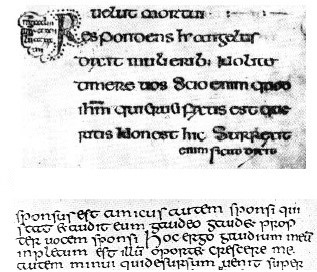 uelut mortui
Respondens hr angelus
dixit mulierib; Nolite
timere uos Scio enim quod
ihm̄ qui est que
ritis Non est hic Surrexit
enim sicut dixit
sponsus est amicus autem sponsi qui
stat & audit eum gaudeo gaude prop
ter uocem sponsi hoc ergo gaudium meū
inpletum est illū oporte crescere me
autem minui qui desursum uenit super